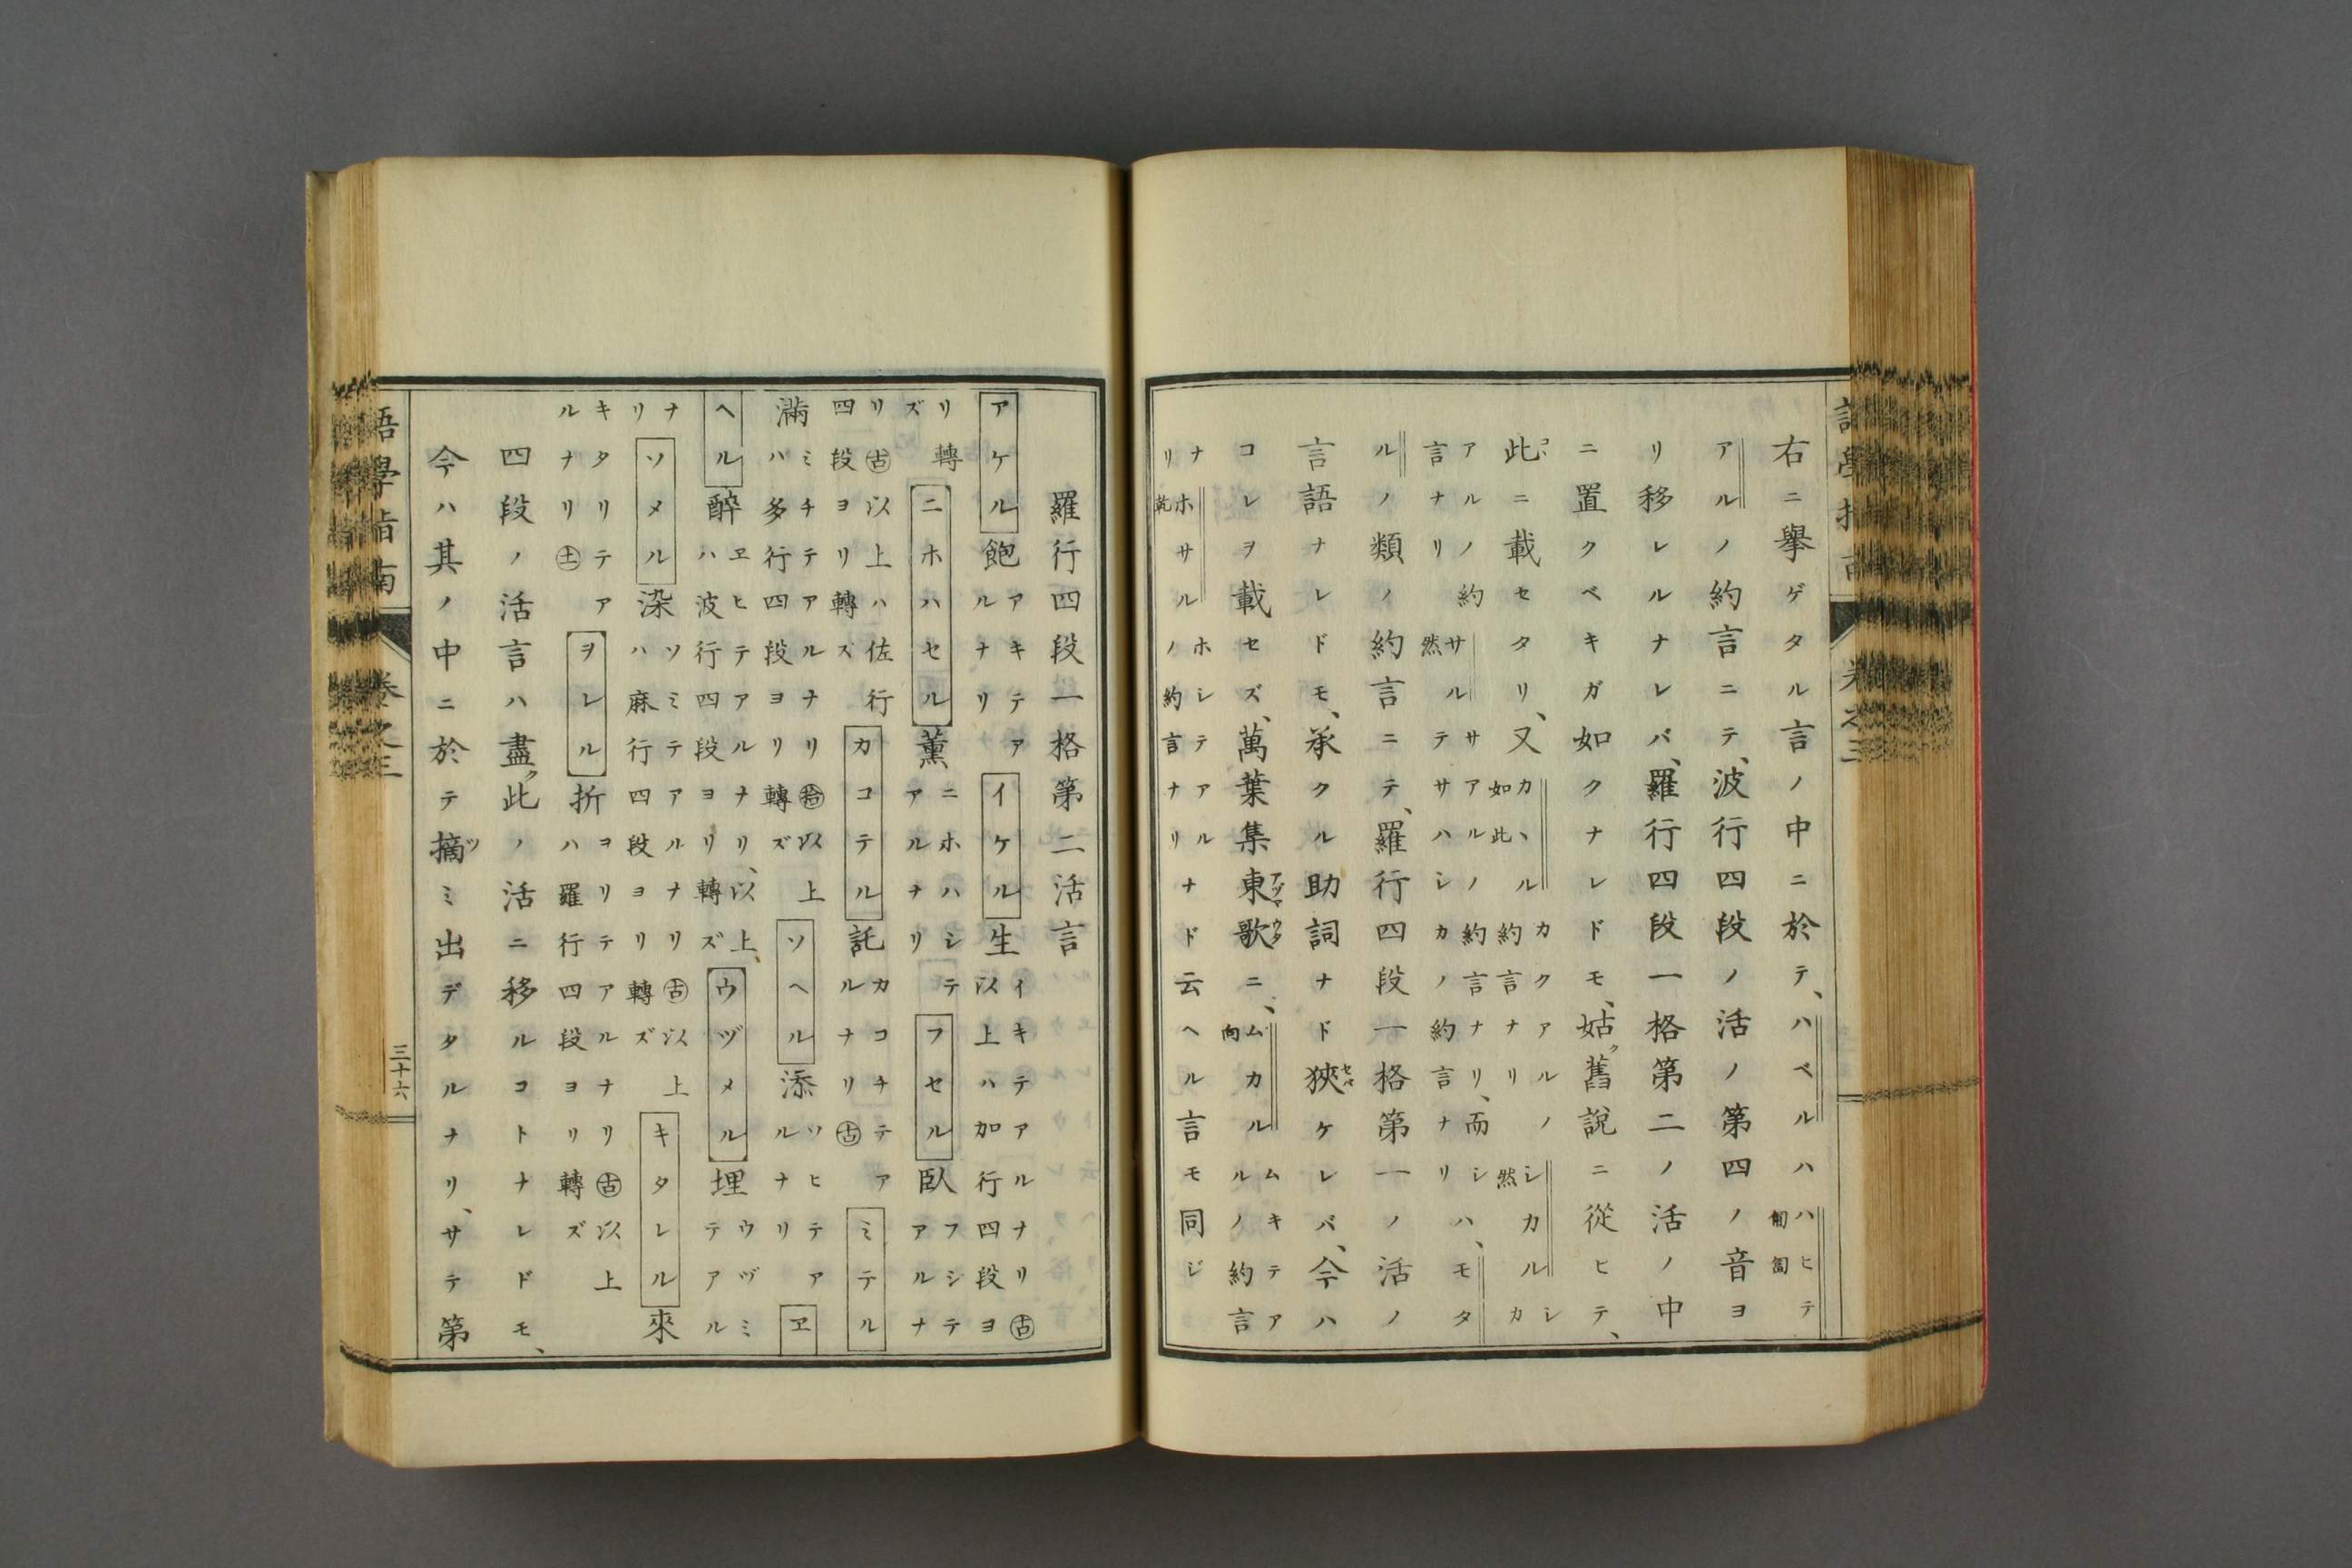 語學指南 卷之三
右ニ擧ゲタル言ノ中ニ於テ、ハベルハ匍匐ハヒテ
アルノ約言ニテ、波行四段ノ活ノ第四ノ音ヨ
リ移レルナレバ、羅行四段一格第二ノ活ノ中
ニ置クベキガ如クナレドモ、姑ク舊説ニ從ヒテ、
此ニ載セタリ、又如此カヽルカクアルノ約言ナリ然シカルシカ
アルノ約言ナリ然サルサアルノ約言ナリ、而シテサハシカノ約言ナリハ、モタ
ルノ類ノ約言ニテ、羅行四段一格第一ノ活ノ
言語ナレドモ、承クル助詞ナド狹ケレバ、今ハ
コレヲ載セズ、萬葉集東歌ニ、向ムカルムキテアルノ約言
ナリ乾ホサルホシテアルノ約言ナリナド云ヘル言モ同ジ
羅行四段一格第二活言
アケル飽アキテアルナリイケル生イキテアルナリ古以上ハ加行四段ヨ
リ轉ズニホハセル薫ニホハシテアルナリフセル臥フシテアルナ
リ古以上ハ佐行四段ヨリ轉ズカコテル託カコチテアルナリ古ミテル
滿ミチテアルナリ拾以上ハ多行四段ヨリ轉ズソヘル添ソヒテアルナリヱ
ヘル醉ヱヒテアルナリ、以上ハ波行四段ヨリ轉ズウヅメル埋ウヅミテアル
ナリソメル染ソミテアルナリ古以上ハ麻行四段ヨリ轉ズキタレル來
キタリテアルナリ土ヲレル折ヲリテアルナリ古以上ハ羅行四段ヨリ轉ズ
四段ノ活言ハ盡ク此ノ活ニ移ルコトナレドモ、
今ハ其ノ中ニ於テ摘ミ出デタルナリ、サテ第
語學指南 卷之三 三十六